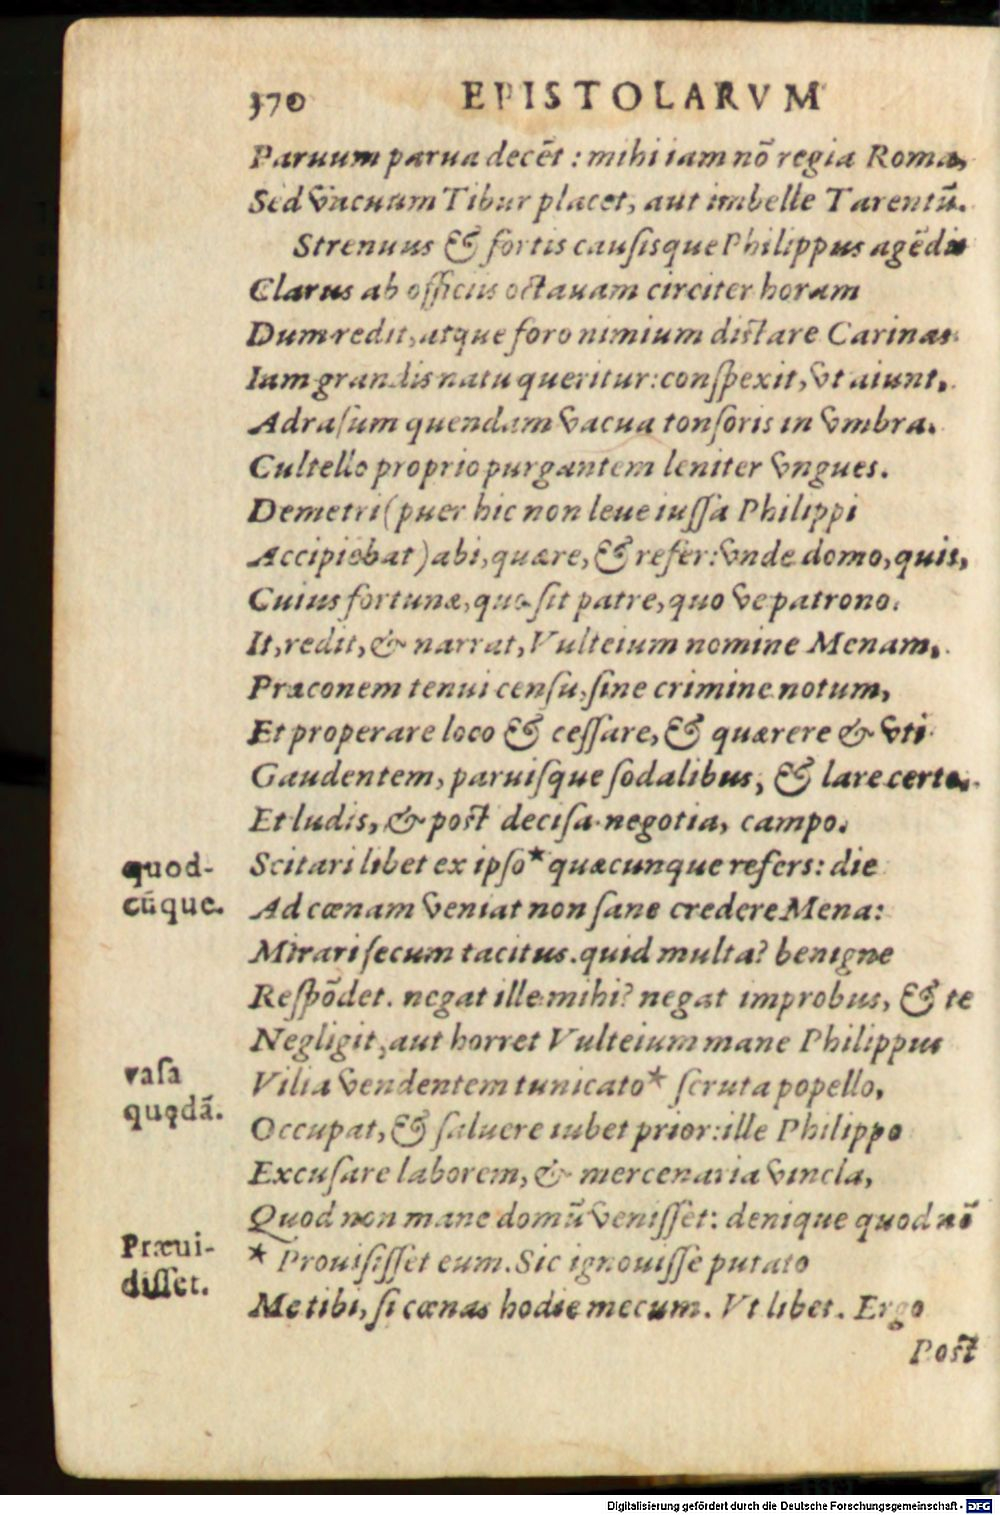 370 EPISTOLARVM
Paruum parua decēt : mihi iam nō regia Roma,
Sed vacuum Tibur placet, aut imbelle Tarentū.
Strenuus & fortis causisque Philippus agēdis
Clarus ab officiis octauam circiter horam
Dum redit, atque foro nimium distare Carinas
Iam grandis natu queritur: conspexit, vt aiunt,
Adrasum quendam vacua tonsoris in vmbra.
Cultello proprio purgantem leniter vngues.
Demetri (puer hic non leue iussa Philippi
Accipiebat) abi, quære, & refer: vnde domo, quis,
Cuius fortunæ, quo sit patre, quo ve patrono.
It, redit, & narrat, Vulteium nomine Menam,
Præconem tenui censu, sine crimine notum,
Et properare loco & cessare, & quærere & vti
Gaudentem, paruisque sodalibus, & lare certo.
Et ludis, & post decisa negotia, campo.
quod- Scitari libet ex ipso * quæcunque refers: dic
cūque. Ad cœnam veniat non sane credere Mena:
Mirari secum tacitus. quid multa? benigne
Respōdet. negat ille mihi? negat improbus, & te
Negligit, aut horret Vulteium mane Philippus
vasa Vilia vendentem tunicato * scruta popello,
quędā. Occupat, & saluere iubet prior: ille Philippo
Excusare laborem, & mercenaria vincla,
Quod non mane domū venisset: denique quod nō
Præui- * Prouisisset eum. Sic ignouisse putato
disset. Me tibi, si cœnas hodie mecum. Vt libet. Ergo
Post
Digitalisierung gefördert durch die Deutsche Forschungsgemeinschaft - DFG